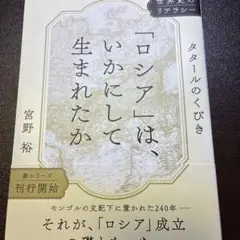 世界史の
リテラシー
「ロシア」は、
いかにして
生まれたか
タタールのくびき
宮野 裕
新シリーズ
刊行開始
モンゴルの支配下に置かれた240年――
それが、「ロシア」成立